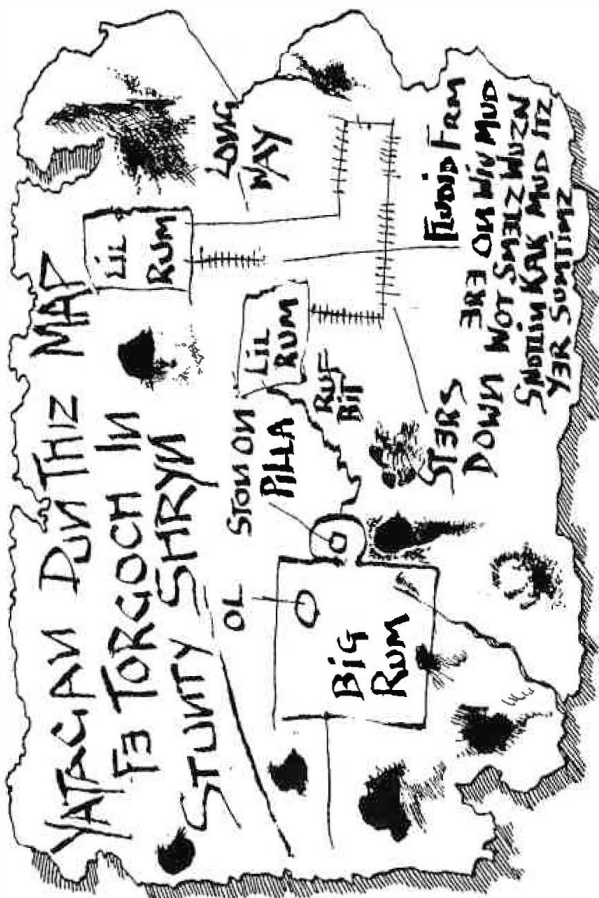 YATAGAN DUN THIZ MAP
FE TORGOCH IN
STUNTY SHRYN
OL
STON ON
PILLA
BIG
RUM
LIL
RUM
RUF
BIT
LIL
RUM
LONG
WAY
STERS
DOWN
FLUDID FRM
ERE ON WIV MUD
NOT SMELZ WUZN
SNOTLIN KAK MUD ITZ
YER SUMTIMZ